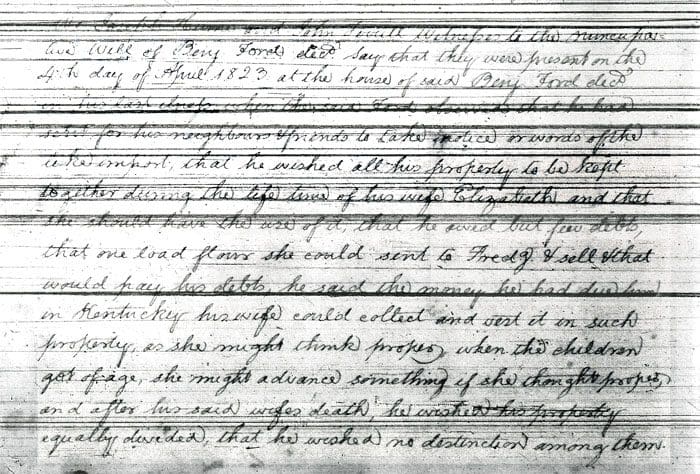 We Joseph and John Witnesses to the nuncupa-
tive Will of Benj Ford decd say that they were present on the
4th day of April 1823 at the house of said Benj Ford decd
in his last illness when the said Ford observed that he had
sent for his neighbours & friends to take notice or words of the
like import, that he wished all his property to be kept
together during the life time of his wife Elizabeth and that
she should have the use of it, that he owed but few debts,
that one load flour she could sent to Fredg & sell & that
would pay his debts, he said the money he had due him
in Kentucky his wife could collect and vest it in such
property, as she might think proper, when the children
got of age, she might advance something if she thought proper,
and after his said wifes death, he wished his property
equally divided, that he wished no destinction among them.